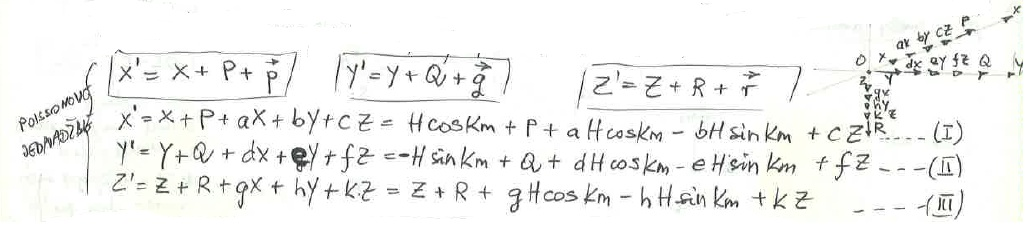 X' = X + P + p⃗   Y' = Y + Q + q⃗   Z' = Z + R + r⃗
POISSONOVE JEDNADŽBE
X' = X + P + aX + bY + cZ = H cos Km + P + aH cos Km - bH sin Km + cZ ---- (I)
Y' = Y + Q + dX + eY + fZ = -H sin Km + Q + dH cos Km - eH sin Km + fZ --- (II)
Z' = Z + R + gX + hY + k.Z = Z + R + gH cos Km - hH sin Km + kZ ---- (III)
X
aX bY cZ P
O X
Y dX eY fZ Q Y
Z
gX
hY
kZ
R